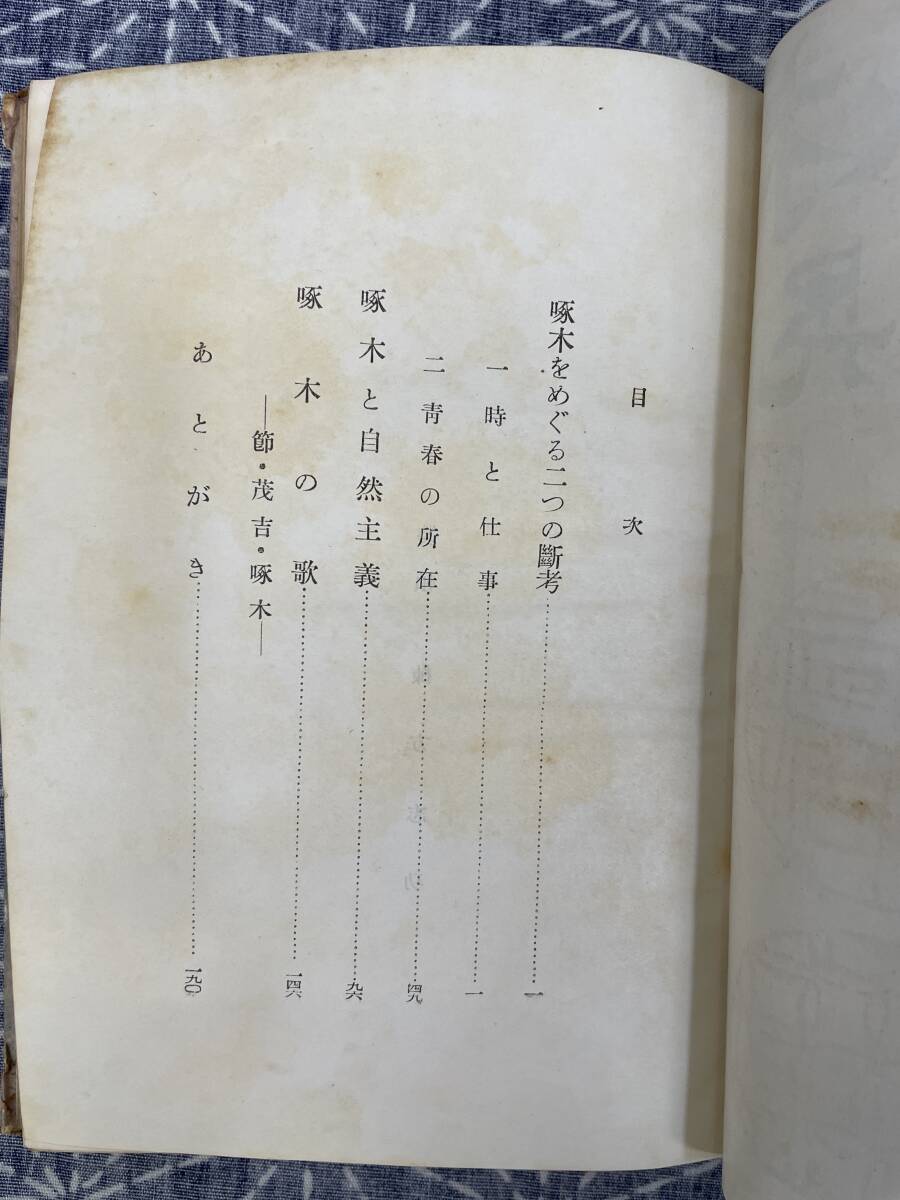 目次
啄木をめぐる二つの斷考……一
一 時と仕事……一
二 靑春の所在……四九
啄木と自然主義……九六
啄木の歌……一四六
―節・茂吉・啄木―
あとがき……一九〇